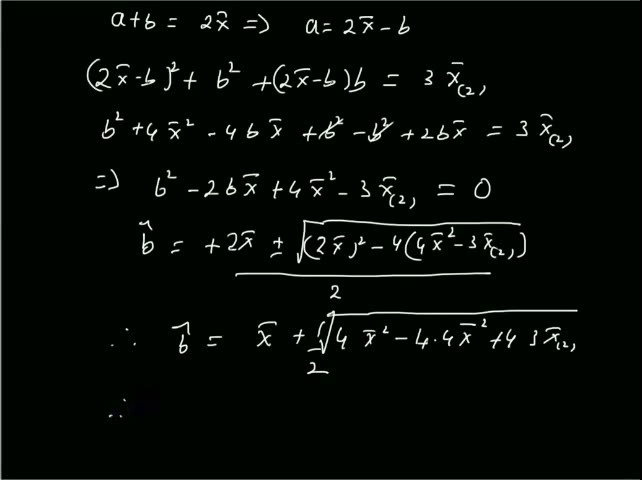 a+b = 2x̄ => a = 2x̄-b
(2x̄-b)² + b² + (2x̄-b)b = 3 x̄₍₂₎
b² + 4x̄² - 4bx̄ + b² - b² + 2bx̄ = 3 x̄₍₂₎
=> b² - 2bx̄ + 4x̄² - 3x̄₍₂₎ = 0
b̂ = +2x̄ ± √((2x̄)² - 4(4x̄² - 3x̄₍₂₎))
2
∴ b̂ = x̄ + 1/2 √(4 x̄² - 4.4x̄² + 4 3x̄₍₂₎
∴